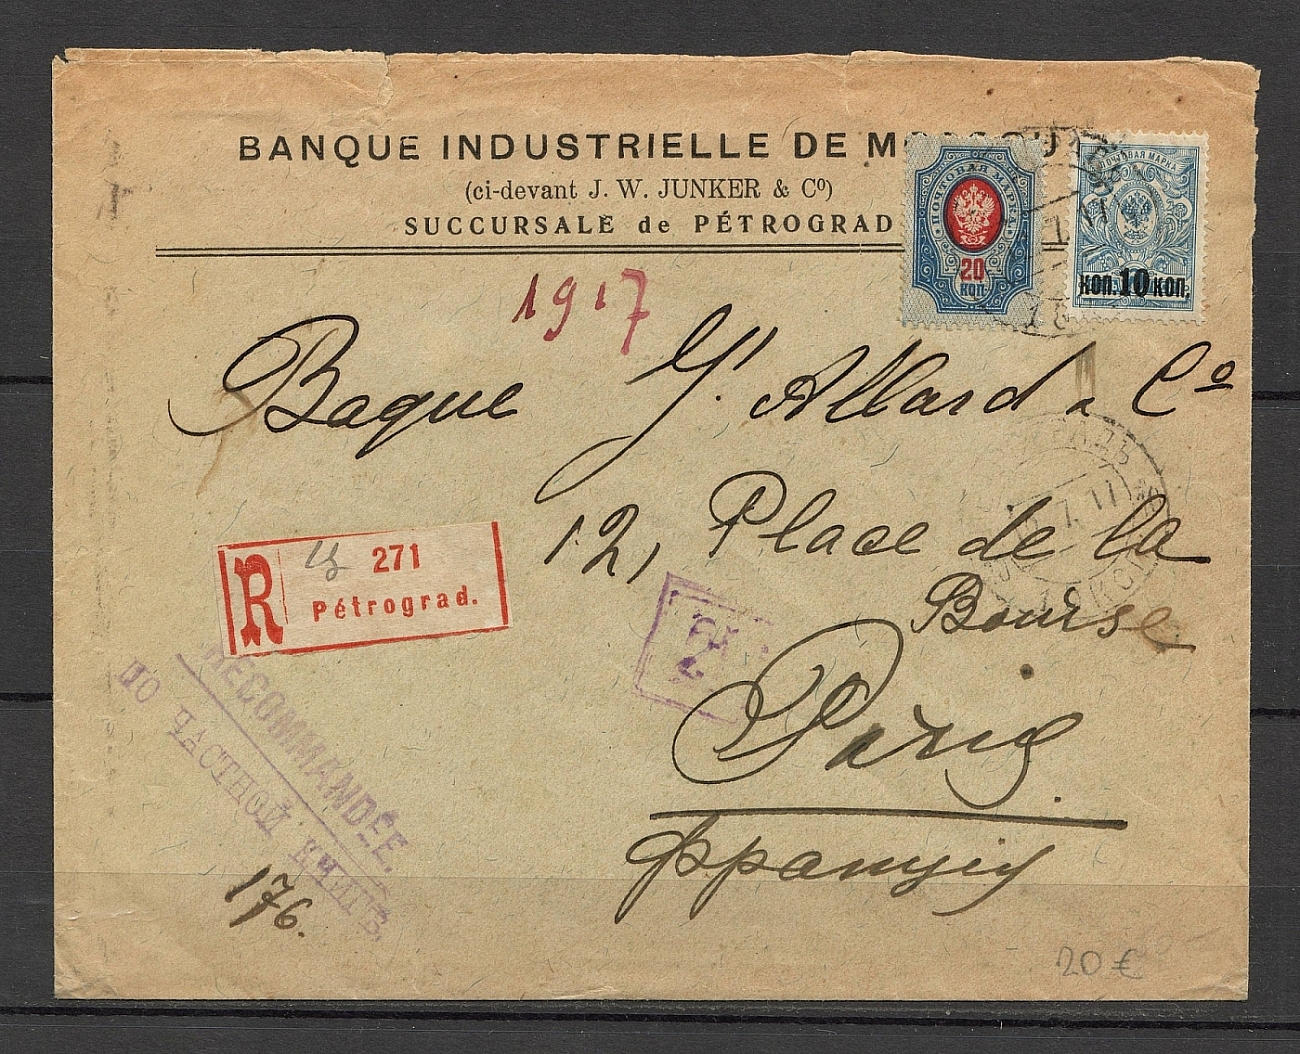 BANQUE INDUSTRIELLE DE M
(ci-devant J. W. JUNKER & Cº)
SUCCURSALE de PÉTROGRAD
ПОЧТОВАЯ МАРКА
20
КОП
ПОЧТОВАЯ МАРКА
КОП. 10 КОП.
1917
Baque J. Allard & Cº
12, Place de la
Bourse
Paris
Франция
R 271
Pétrograd.
RECOMMANDÉE.
ПО ЧАСТНОЙ КНИГѢ.
176.
7.17
20 €